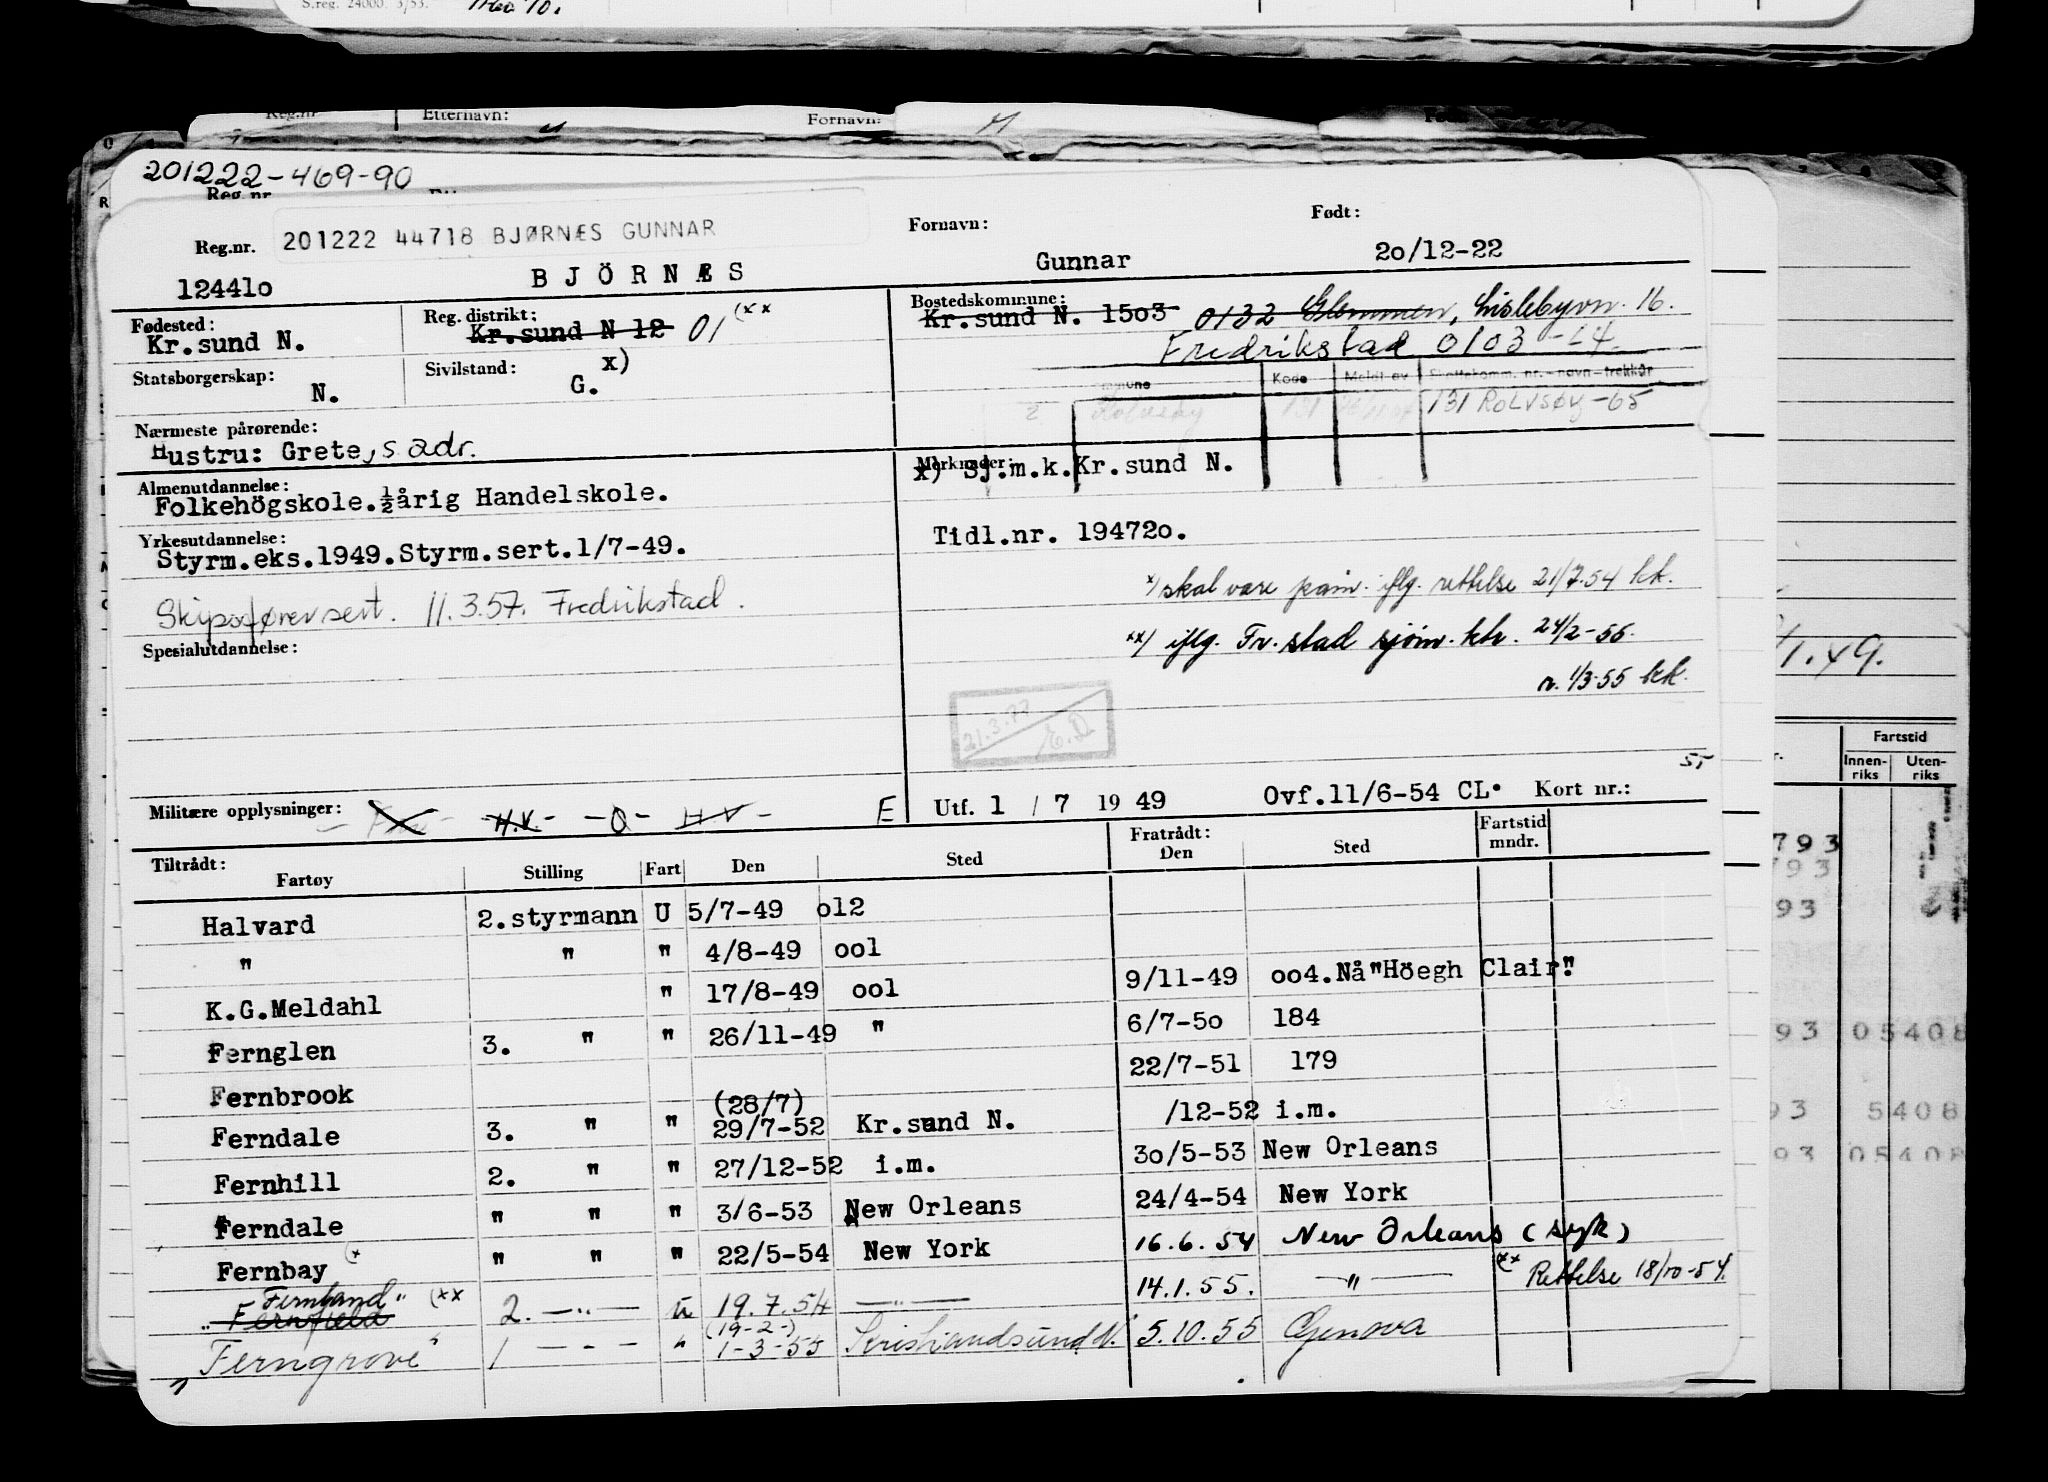 S.reg. 24000. 3/53.
Reg.nr Etternavn: Fornavn:
201222-469-90
Reg.nr.
Reg.nr. 201222 44718 BJØRNÆS GUNNAR Fornavn: Født:
124410 BJÖRNÆS Gunnar 20/12-22
Fødested: Reg. distrikt: (xx Bostedskommune:
Kr.sund N. Kr.sund N 12 01 Kr.sund N. 1503 0132 Glemmen, Lislebyvn. 16.
Fredrikstad 0103 -64.
Statsborgerskap: Sivilstand: x)
N. G.
Kode Meldt av Skattekomm. nr.-navn-trekkår
131 ROLVSØY-65
Nærmeste pårørende:
Hustru: Grete, s adr.
Merknader:
x) Sj.m.k.Kr.sund N.
Almenutdannelse:
Folkehögskole.½årig Handelskole.
Tidl.nr. 194720.
Yrkesutdannelse:
Styrm.eks.1949.Styrm.sert.1/7-49.
x) skal være iflg. rettelse 21/7.54 kk.
Skipsførersert. 11.3.57. Fredrikstad.
xx) iflg. Fr.stad sjøm.ktr. 24/2-55.
1/3-55 kk.
Spesialutdannelse:
21.3.77
E.D
55
Militære opplysninger: H.V. -O- H V - E Utf. 1 / 7 1949 Ovf.11/6-54 CL. Kort nr.:
Tiltrådt: Fratrådt: Fartstid mndr.
Fartøy Stilling Fart Den Sted Den Sted
Halvard 2.styrmann U 5/7-49 o12
" " " 4/8-49 ool
K.G.Meldahl " 17/8-49 ool 9/11-49 oo4.Nå"Höegh Clair".
Fernglen 3. " " 26/11-49 " 6/7-50 184
Fernbrook 22/7-51 179
(28/7)
Ferndale 3. " " 29/7-52 Kr.sund N. /12-52 i.m.
Fernhill 2. " " 27/12-52 i.m. 30/5-53 New Orleans
Ferndale " " " 3/6-53 New Orleans 24/4-54 New York
Fernbay (x " " " 22/5-54 New York 16.6.54 New Orleans (syk)
Fernland"
"Fernfield (xx 2. -"- u 19.7.54 -"- 14.1.55. -"- (xx Rettelse 18/10-54.
(19-2-)
"Ferngrove" 1 - - - " 1-3-55 Kristiandsund N. 5.10.55 Genova
1.49.
Fartstid
Innen-riks Uten-riks
793
793
93
93 05408
93 5408
93 05408